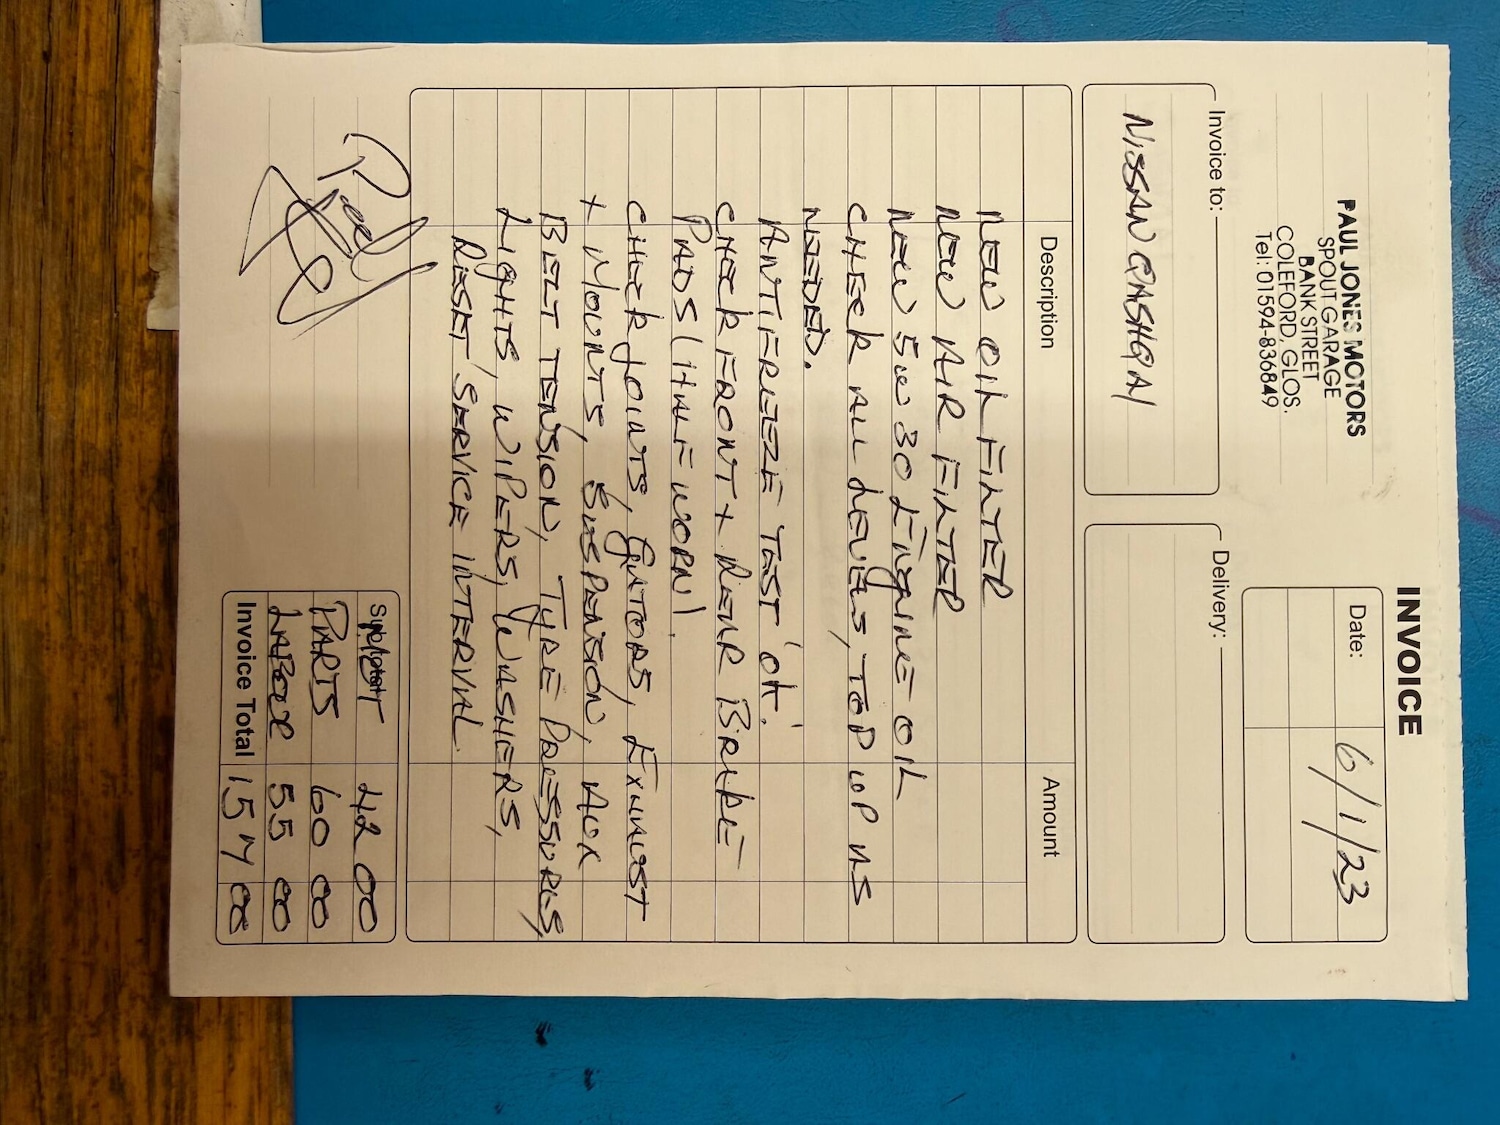 INVOICE
PAUL JONES MOTORS
SPOUT GARAGE
BANK STREET
COLEFORD, GLOS.
Tel: 01594-836849
Date: 6/1/23
Invoice to:
NISSAN QASHQAI
Delivery:
Description Amount
NEW OIL FILTER
NEW AIR FILTER
NEW 5W 30 ENGINE OIL
CHECK ALL LEVELS, TOP UP AS
NEEDED.
ANTIFREEZE TEST 'OK'.
CHECK FRONT + REAR BRAKE
PADS (HALF WORN).
CHECK JOINTS, GATORS, EXHAUST
+ MOUNTS, SUSPENSION, AUX
BELT TENSION, TYRE PRESSURES,
LIGHTS, WIPERS, WASHERS,
RESET 'SERVICE INTERVAL
42 00
PARTS 60 00
LABOUR 55 00
Invoice Total 157 00